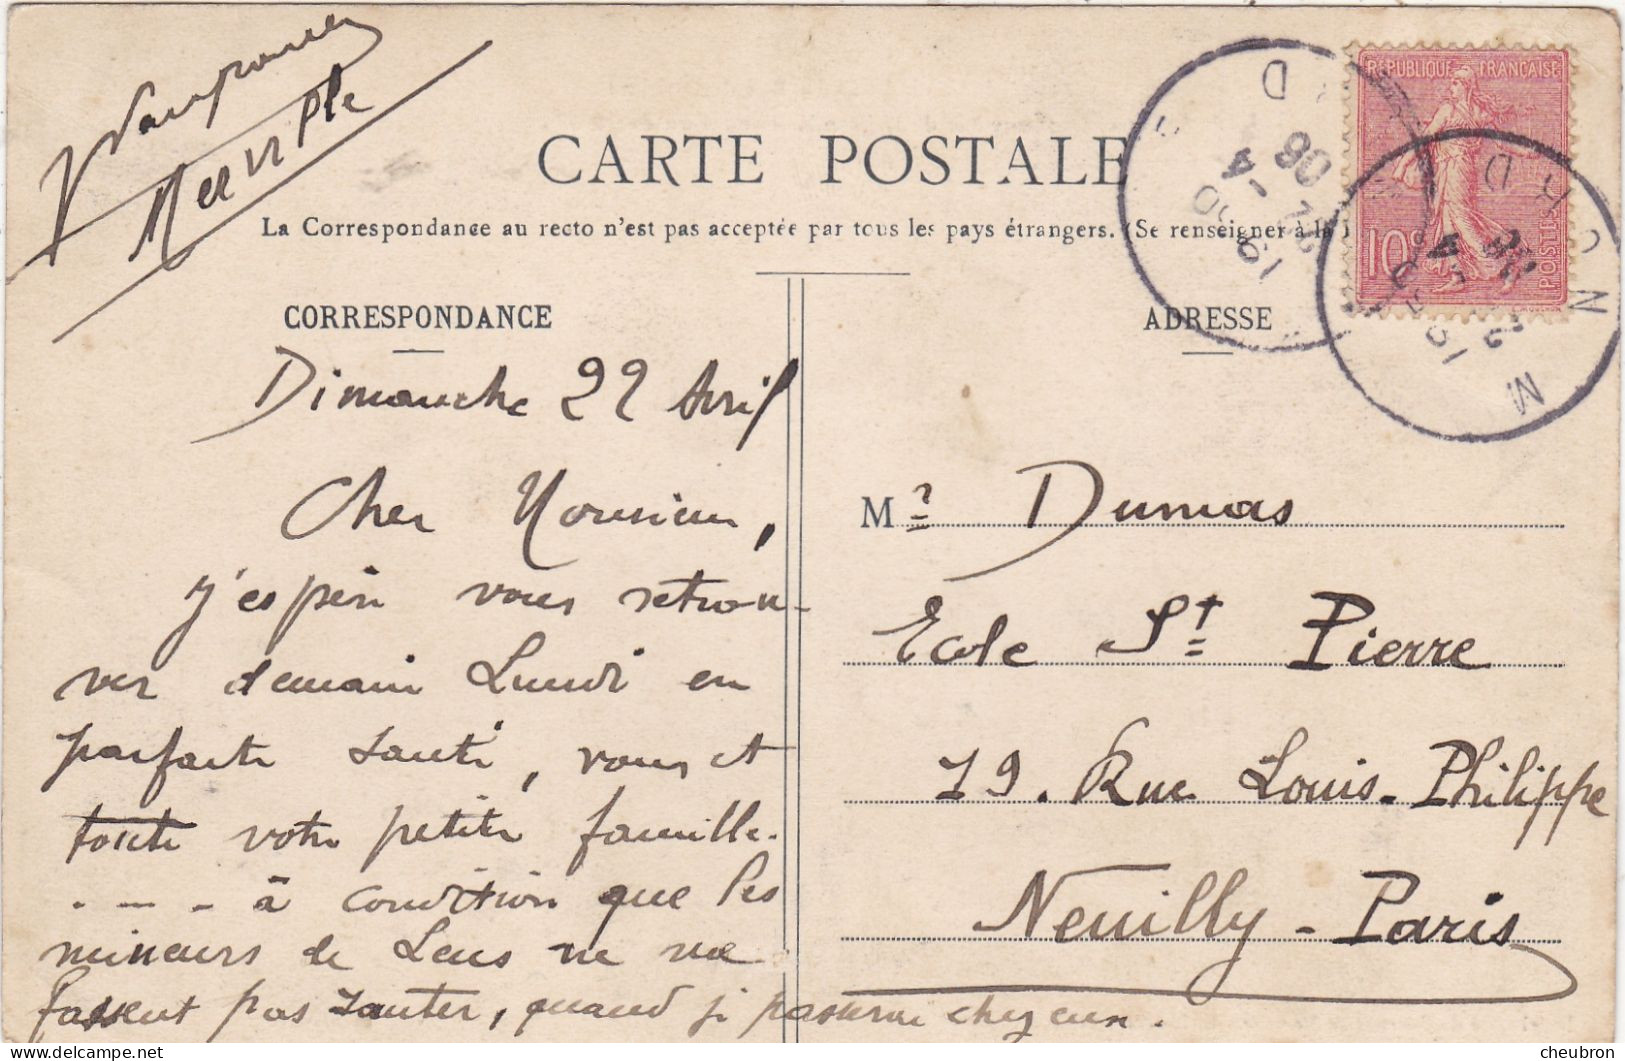 CARTE POSTALE
La Correspondance au recto n'est pas acceptée par tous les pays étrangers. (Se renseigner à la
CORRESPONDANCE
ADRESSE
RÉPUBLIQUE FRANÇAISE
10c
POSTES
19 30
22 - 4
06
NORD
Dimanche 22 Avril
Cher Monsieur,
j'espère vous retrou-
ver demain Lundi en
parfaite santé, vous et
toute votre petite famille.
. — — . à condition que les
mineurs de Lens ne me
fassent pas sauter, quand je passerai chez eux.
Mr Dumas
Ecole St Pierre
79. Rue Louis-Philippe
Neuilly - Paris